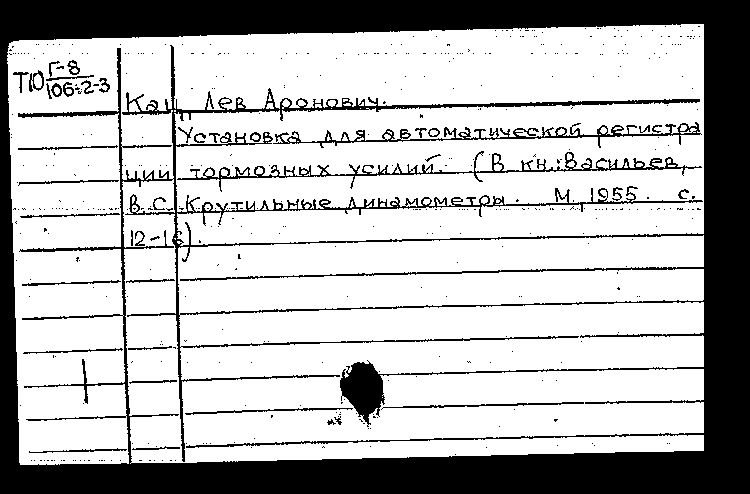 ТЮ Г-8
106:2-3
Кац, Лев Аронович.
Установка для автоматической регистра
ции тормозных усилий. (В кн.: Васильев,
В.С. Крутильные динамометры. М, 1955. с.
12-16).